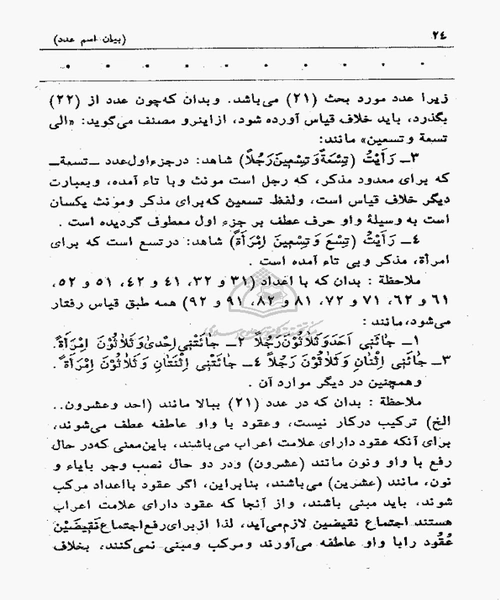 ۲۴ (بیان اسم عدد)
زیرا عدد مورد بحث (۲۱) می‌باشد. وبدان که‌چون عدد از (۲۲)
بگذرد، باید خلاف قیاس آورده شود، ازاینرو مصنف می‌گوید: «الی
تسعة وتسعین» مانند:
۳ـ رَأَیْتُ (تِسْعَةً وَتِسْعینَ رَجُلاً) شاهد: درجزء‌اول‌عدد ـ تسعة ـ
که برای معدود مذکر، که رجل است مونث وبا تاء آمده، وبعبارت
دیگر خلاف قیاس است، ولفظ تسعین که‌برای مذکر ومونث یکسان
است به وسیلهٔ واو حرف عطف بر جزء اول معطوف گردیده است .
۴ـ رَأَیْتُ (تِسْعَ وَ تِسْعینَ اِمْرَأَةً) شاهد: درتسع است که برای
امرأة، مذکر وبی تاء آمده است .
ملاحظة : بدان که با اعداد (۳۱ و ۳۲، ۴۱ و ۴۲، ۵۱ و ۵۲،
۶۱ و ۶۲، ۷۱ و ۷۲، ۸۱ و ۸۲، ۹۱ و ۹۲) همه طبق قیاس رفتار
می‌شود، مانند :
۱ـ جٰائَنی اَحَدٌ وَثَلاٰثُونَ رَجُلاً ۲ـ جٰائَتْنی اِحْدیٰ وَثَلاٰثُونَ اِمْرَأَةً.
۳ـ جٰائَنی اِثْنٰانِ وَثَلاٰثُونَ رَجُلاً ۴ـ جٰائَتْنی اِثْنَتٰانِ وَثَلاٰثُونَ اِمْرَأَةً.
وهمچنین در دیگر موارد آن .
ملاحظة : بدان که در عدد (۲۱) ببالا مانند (احد وعشرون..
الخ) ترکیب درکار نیست، وعقود با واو عاطفه عطف می‌شوند،
برای آنکه عقود دارای علامت اعراب می‌باشند، باین‌معنی که‌در حال
رفع با واو ونون مانند (عشرون) ودر دو حال نصب وجر بایاء و
نون، مانند (عشرین) می‌باشند، بنابراین، اگر عقود بااعداد مرکب
شوند، باید مبنی باشند، واز آنجا که عقود دارای علامت اعراب
هستند اجتماع نقیضین لازم‌می‌آید، لذا ازبرای‌رفع‌اجتماع نَقیضَیْن
عُقُود رابا واو عاطفه می‌آورند ومرکب ومبنی نمی‌کنند، بخلاف